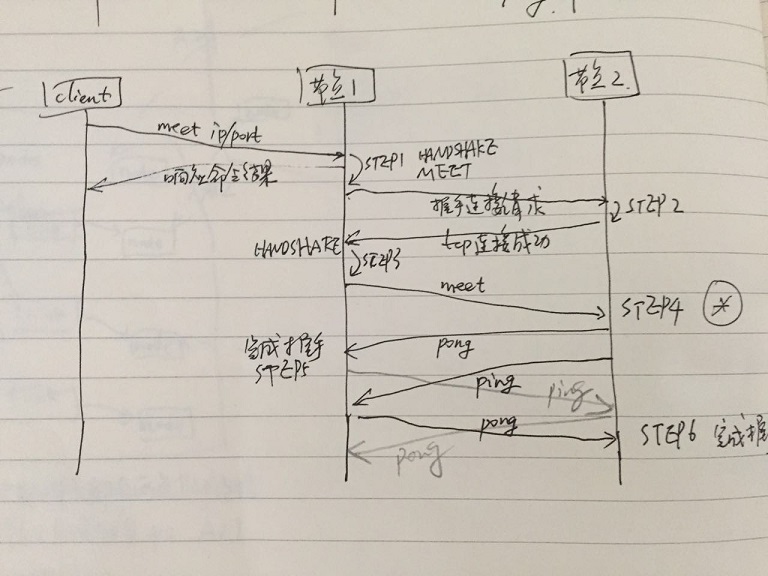 client
节点1
节点2
meet ip/port
STEP1 HANDSHAKE
MEET
响应命令结果
握手连接请求
STEP2
tcp连接成功
HANDSHAKE
STEP3
meet
STEP4 *
pong
完成握手
STEP5
ping
ping
pong
STEP6 完成握
pong